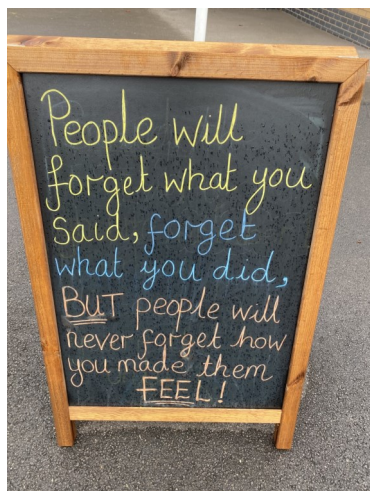 People will
forget what you
said, forget
what you did,
BUT people will
never forget how
you made them
FEEL!